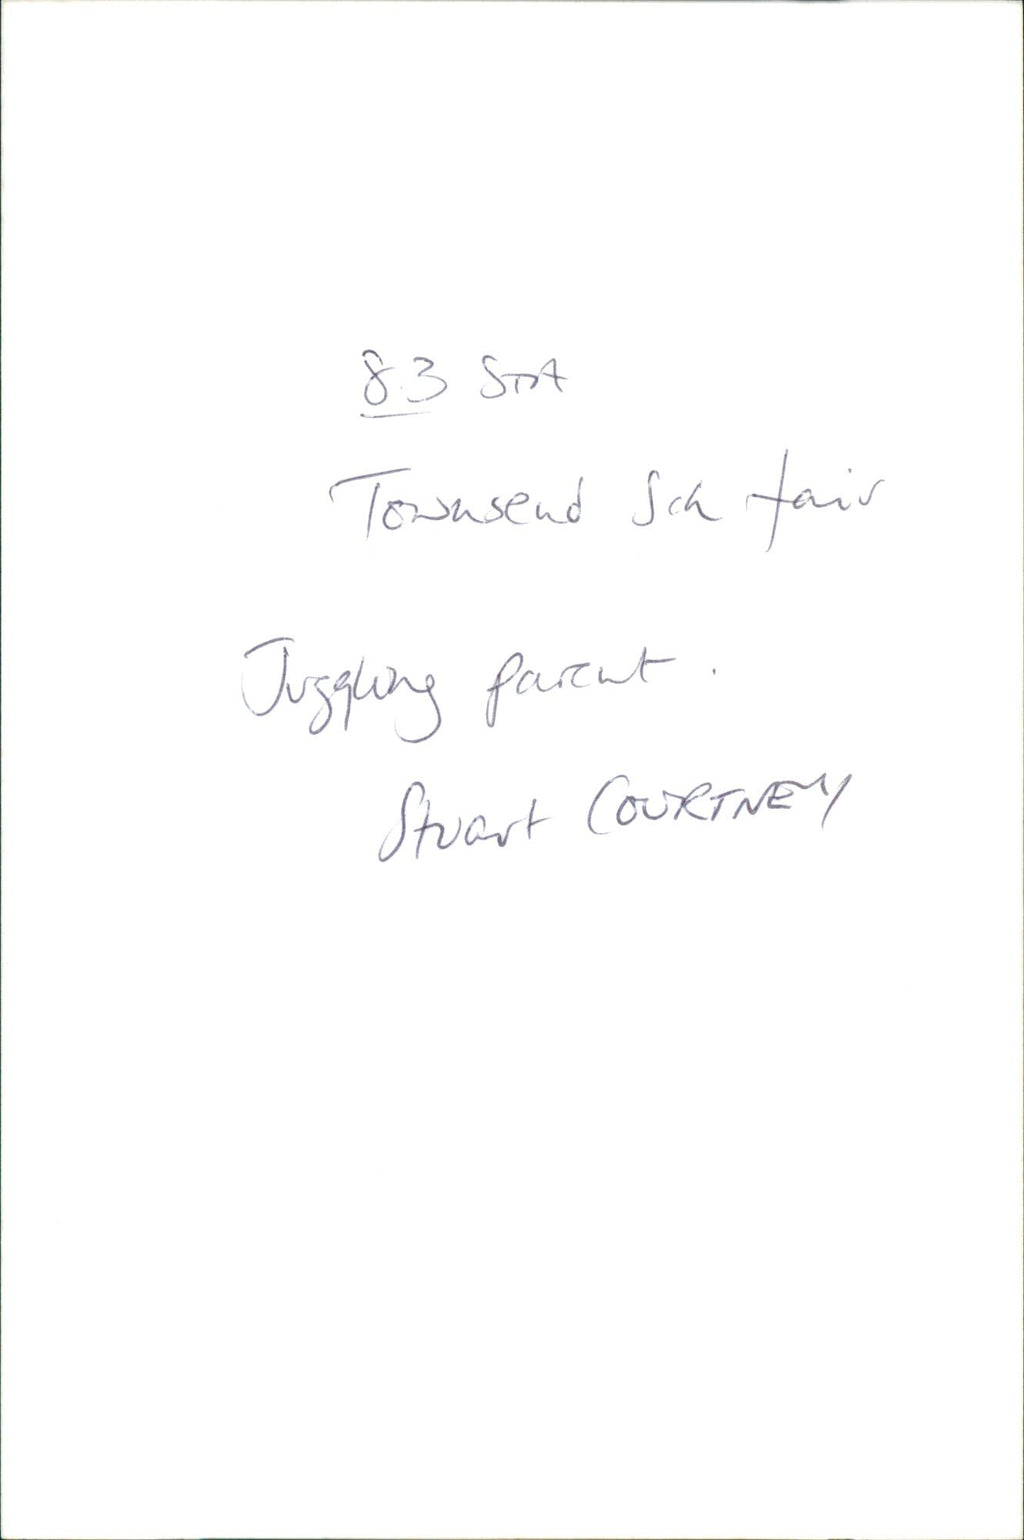 8.3 StA
Townsend Sch fair
Juggling parent.
Stuart COURTNEY